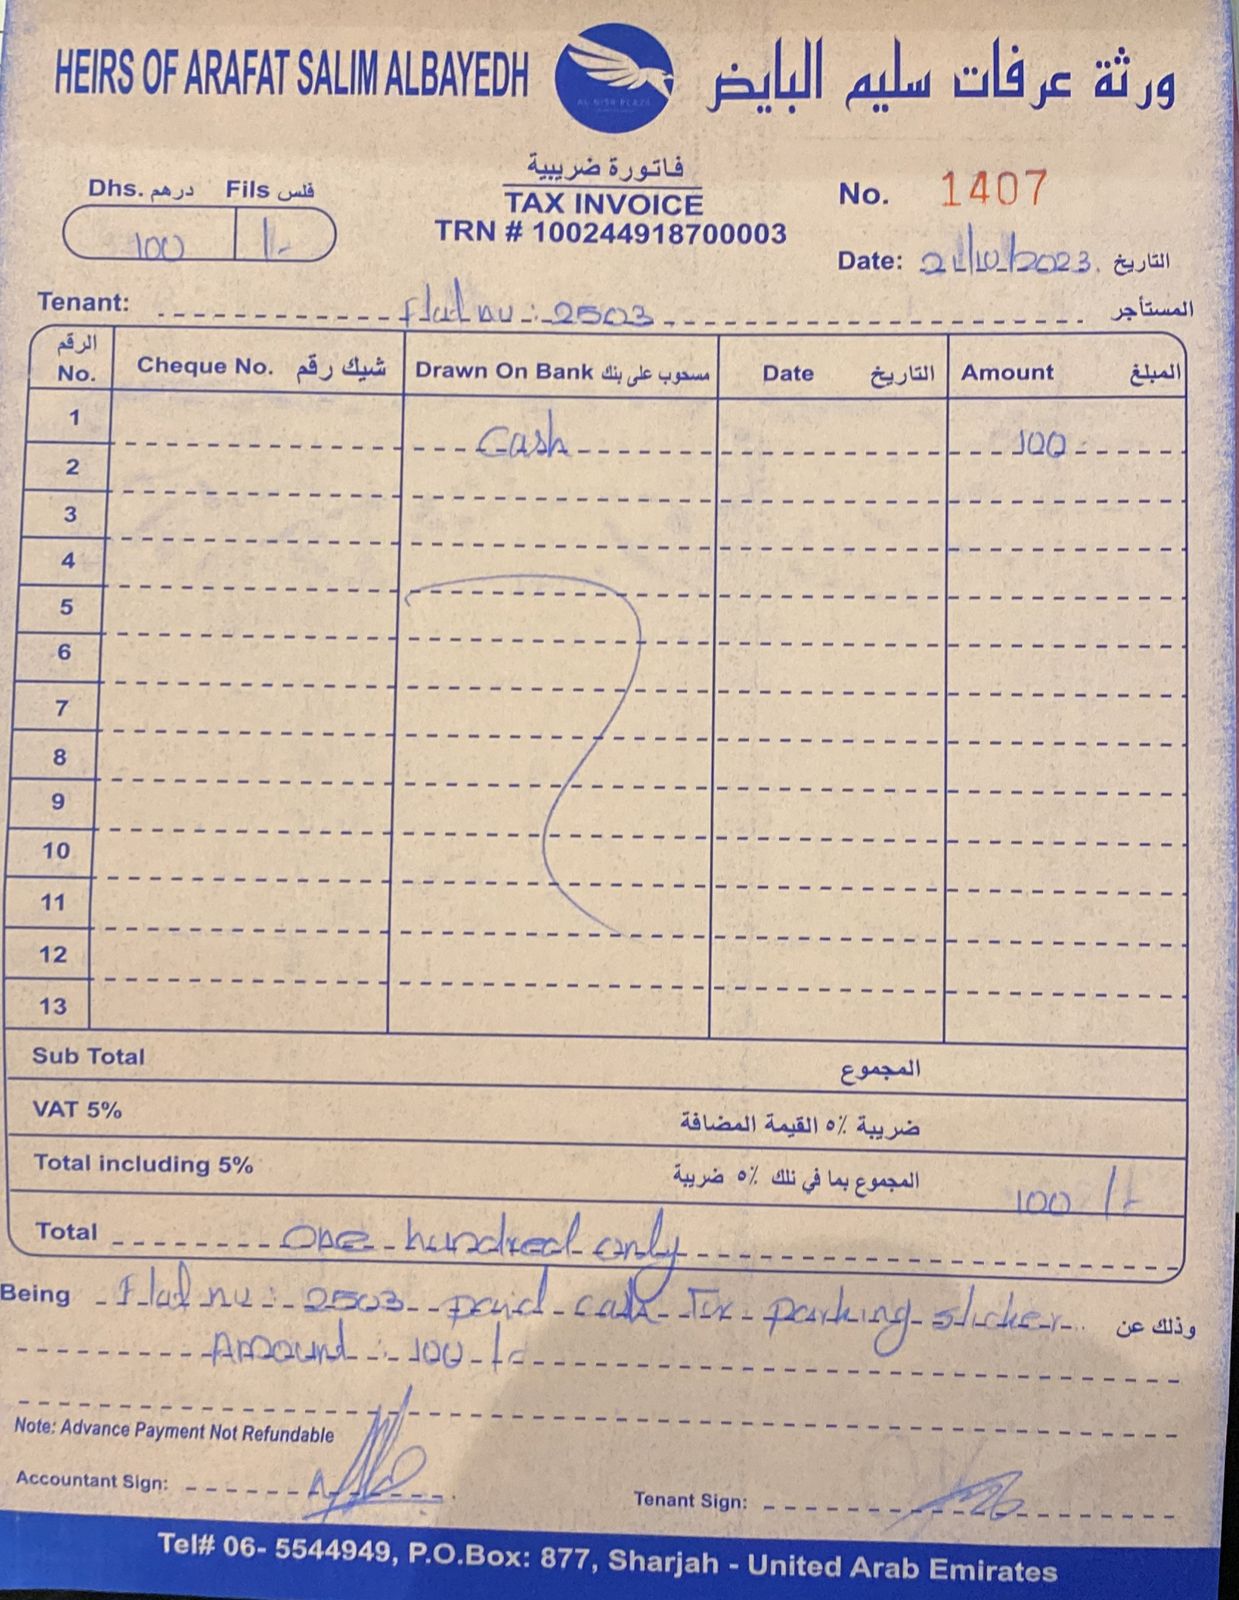 HEIRS OF ARAFAT SALIM ALBAYEDH
ورثة عرفات سليم البايض
AL NISR PLAZA
فاتورة ضريبية
TAX INVOICE
TRN # 100244918700003
Dhs. درهم Fils فلس
100 /-
No. 1407
Date: 21/10/2023. التاريخ
Tenant: Flat no : 2503 المستأجر
الرقم No. Cheque No. شيك رقم Drawn On Bank مسحوب على بنك Date التاريخ Amount المبلغ
1 Cash 100
2
3
4
5
6
7
8
9
10
11
12
13
Sub Total المجموع
VAT 5% ضريبة ٥٪ القيمة المضافة
Total including 5% المجموع بما في ذلك ٥٪ ضريبة 100 /-
Total One hundred only
Being Flat no : 2503 paid cash for parking sticker وذلك عن
Amount : 100 /-
Note: Advance Payment Not Refundable
Accountant Sign:
Tenant Sign:
Tel# 06- 5544949, P.O.Box: 877, Sharjah - United Arab Emirates